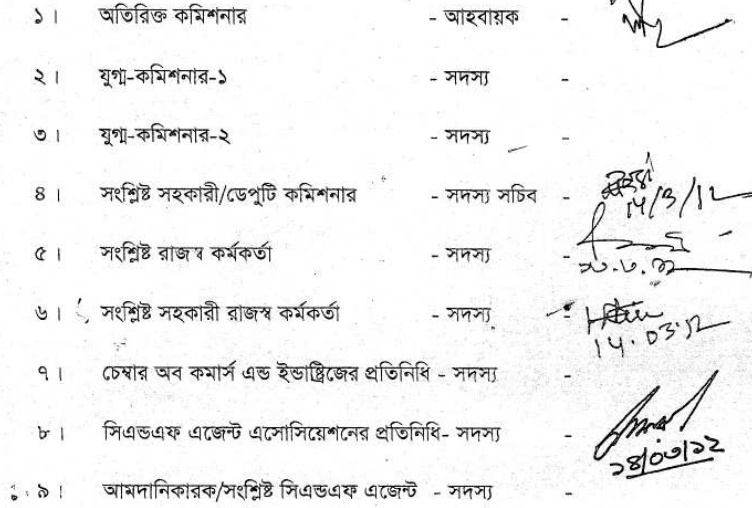 ১। অতিরিক্ত কমিশনার - আহবায়ক -
২। যুগ্ম-কমিশনার-১ - সদস্য -
৩। যুগ্ম-কমিশনার-২ - সদস্য -
৪। সংশ্লিষ্ট সহকারী/ডেপুটি কমিশনার - সদস্য সচিব - 14/3/12
৫। সংশ্লিষ্ট রাজস্ব কর্মকর্তা - সদস্য -
৬। সংশ্লিষ্ট সহকারী রাজস্ব কর্মকর্তা - সদস্য - 14.03.12
৭। চেম্বার অব কমার্স এন্ড ইন্ডাষ্ট্রিজের প্রতিনিধি - সদস্য -
৮। সিএন্ডএফ এজেন্ট এসোসিয়েশনের প্রতিনিধি- সদস্য - ১৪/০৩/১২
৯। আমদানিকারক/সংশ্লিষ্ট সিএন্ডএফ এজেন্ট - সদস্য -